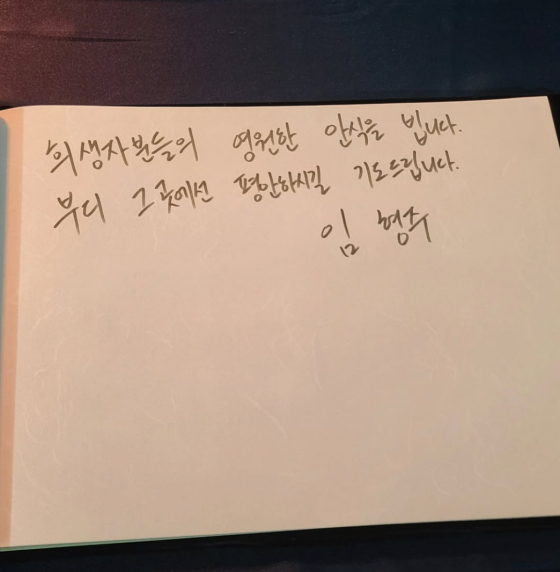 희생자분들의 영원한 안식을 빕니다.
부디 그곳에선 평안하시길 기도드립니다.
임 형주